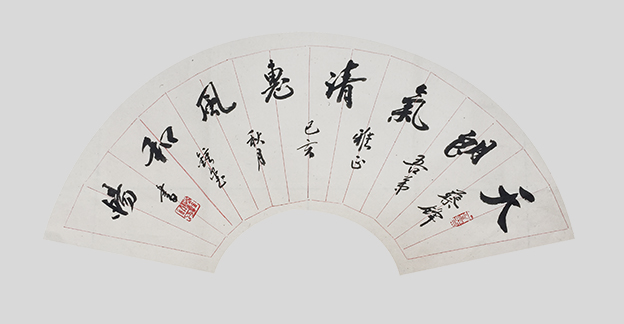 天朗氣清惠風和暢
蔡鋒
吾弟
雅正
己亥
秋月
書